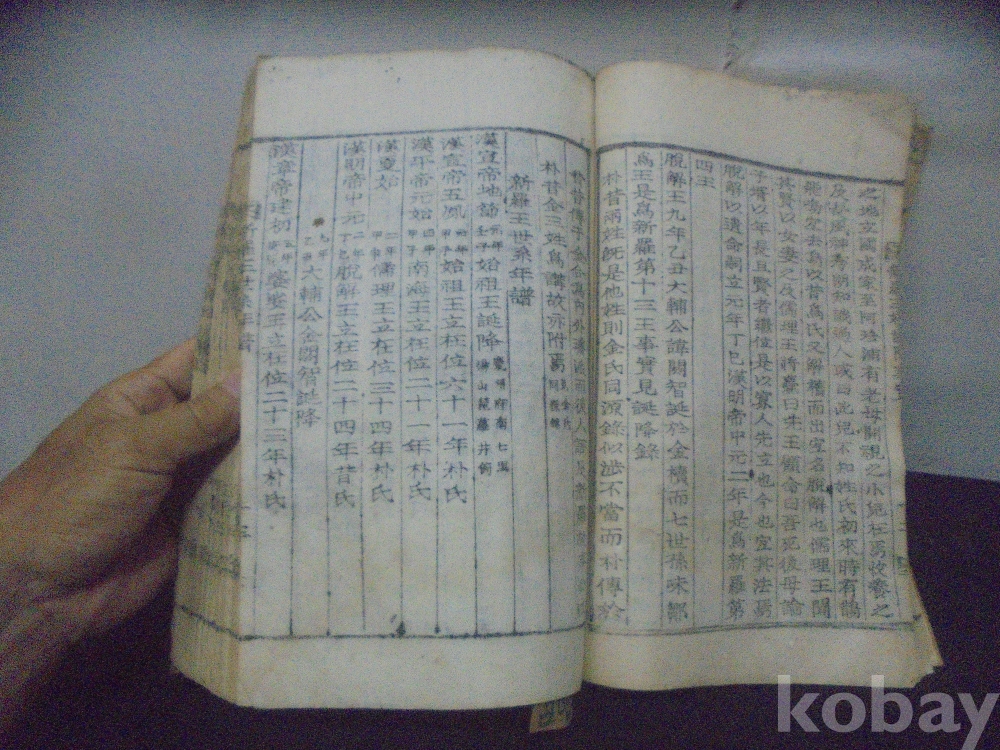 之地立國成家至阿珍浦有老母開視之小兒在焉收養之
及長風神秀朗知識過人或曰此兒不知姓氏初來時有鵲
飛鳴宜去鳥以昔爲氏又解櫝而出宜名脫解也儒理王聞
其賢以女妻之及儒理王將薨曰先王顧命曰吾死後毋論
子壻以年長且賢者繼位是以寡人先立也今也宜其法焉
脫解以遺命嗣立元年丁巳漢明帝中元二年是爲新羅第
四王
脫解王九年乙丑大輔公諱閼智誕於金櫝而七世孫味鄒
爲王是爲新羅第十三王事實見誕降錄
朴昔兩姓旣是他姓則金氏同源錄似涉不當而朴傳於
朴昔金三姓爲譜故亦附焉
新羅王世系年譜
漢宣帝地節元年壬子始祖王誕降 慶州府南七里
漢宣帝五鳳元年甲子始祖王立在位六十一年朴氏
漢平帝元始四年甲子南海王立在位二十一年朴氏
漢更始二年甲申儒理王立在位三十四年朴氏
漢明帝中元二年丁巳脫解王立在位二十四年昔氏
九年乙丑大輔公金閼智誕降
漢章帝建初五年婆娑王立在位二十三年朴氏
kobay